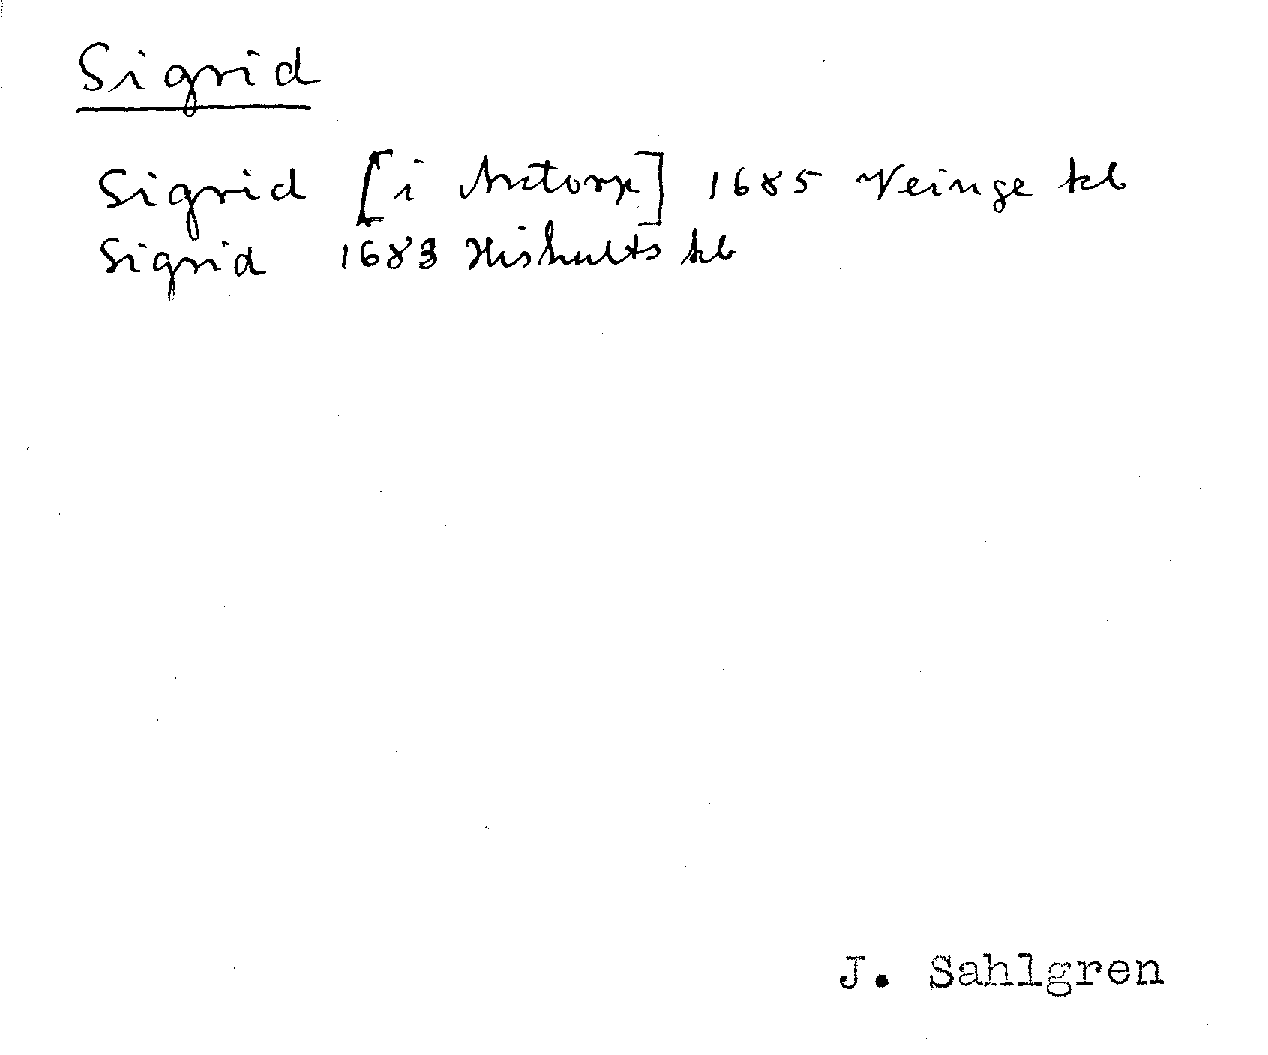 Sigrid
Sigrid [i ] 1685 Veinge kb
Sigrid 1683 Hishults kb
J. Sahlgren